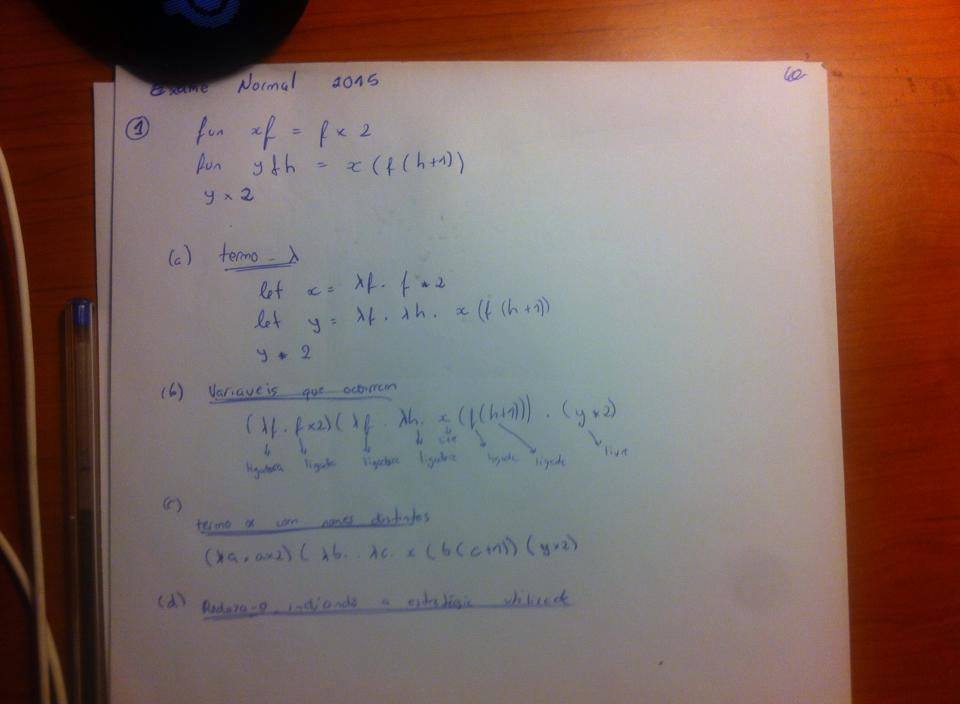 Exame Normal 2015
① fun xf = f x 2
fun yfh = x (f (h+1))
y x 2
(a) termo - λ
let x = λf. f * 2
let y = λf. λh. x (f (h+1))
y * 2
(b) Variaveis que ocorrem
(λf. f x 2) (λf. λh. x (f(h+1))) . (y * 2)
ligadora ligada ligadora ligadora livre ligada ligada livre
(c)
termo α com nomes distintos
(λa. a x 2) ( λb. λc. x (b(c+1)) (y x 2)
(d) Reduza-o indicando a estratégia utilizada